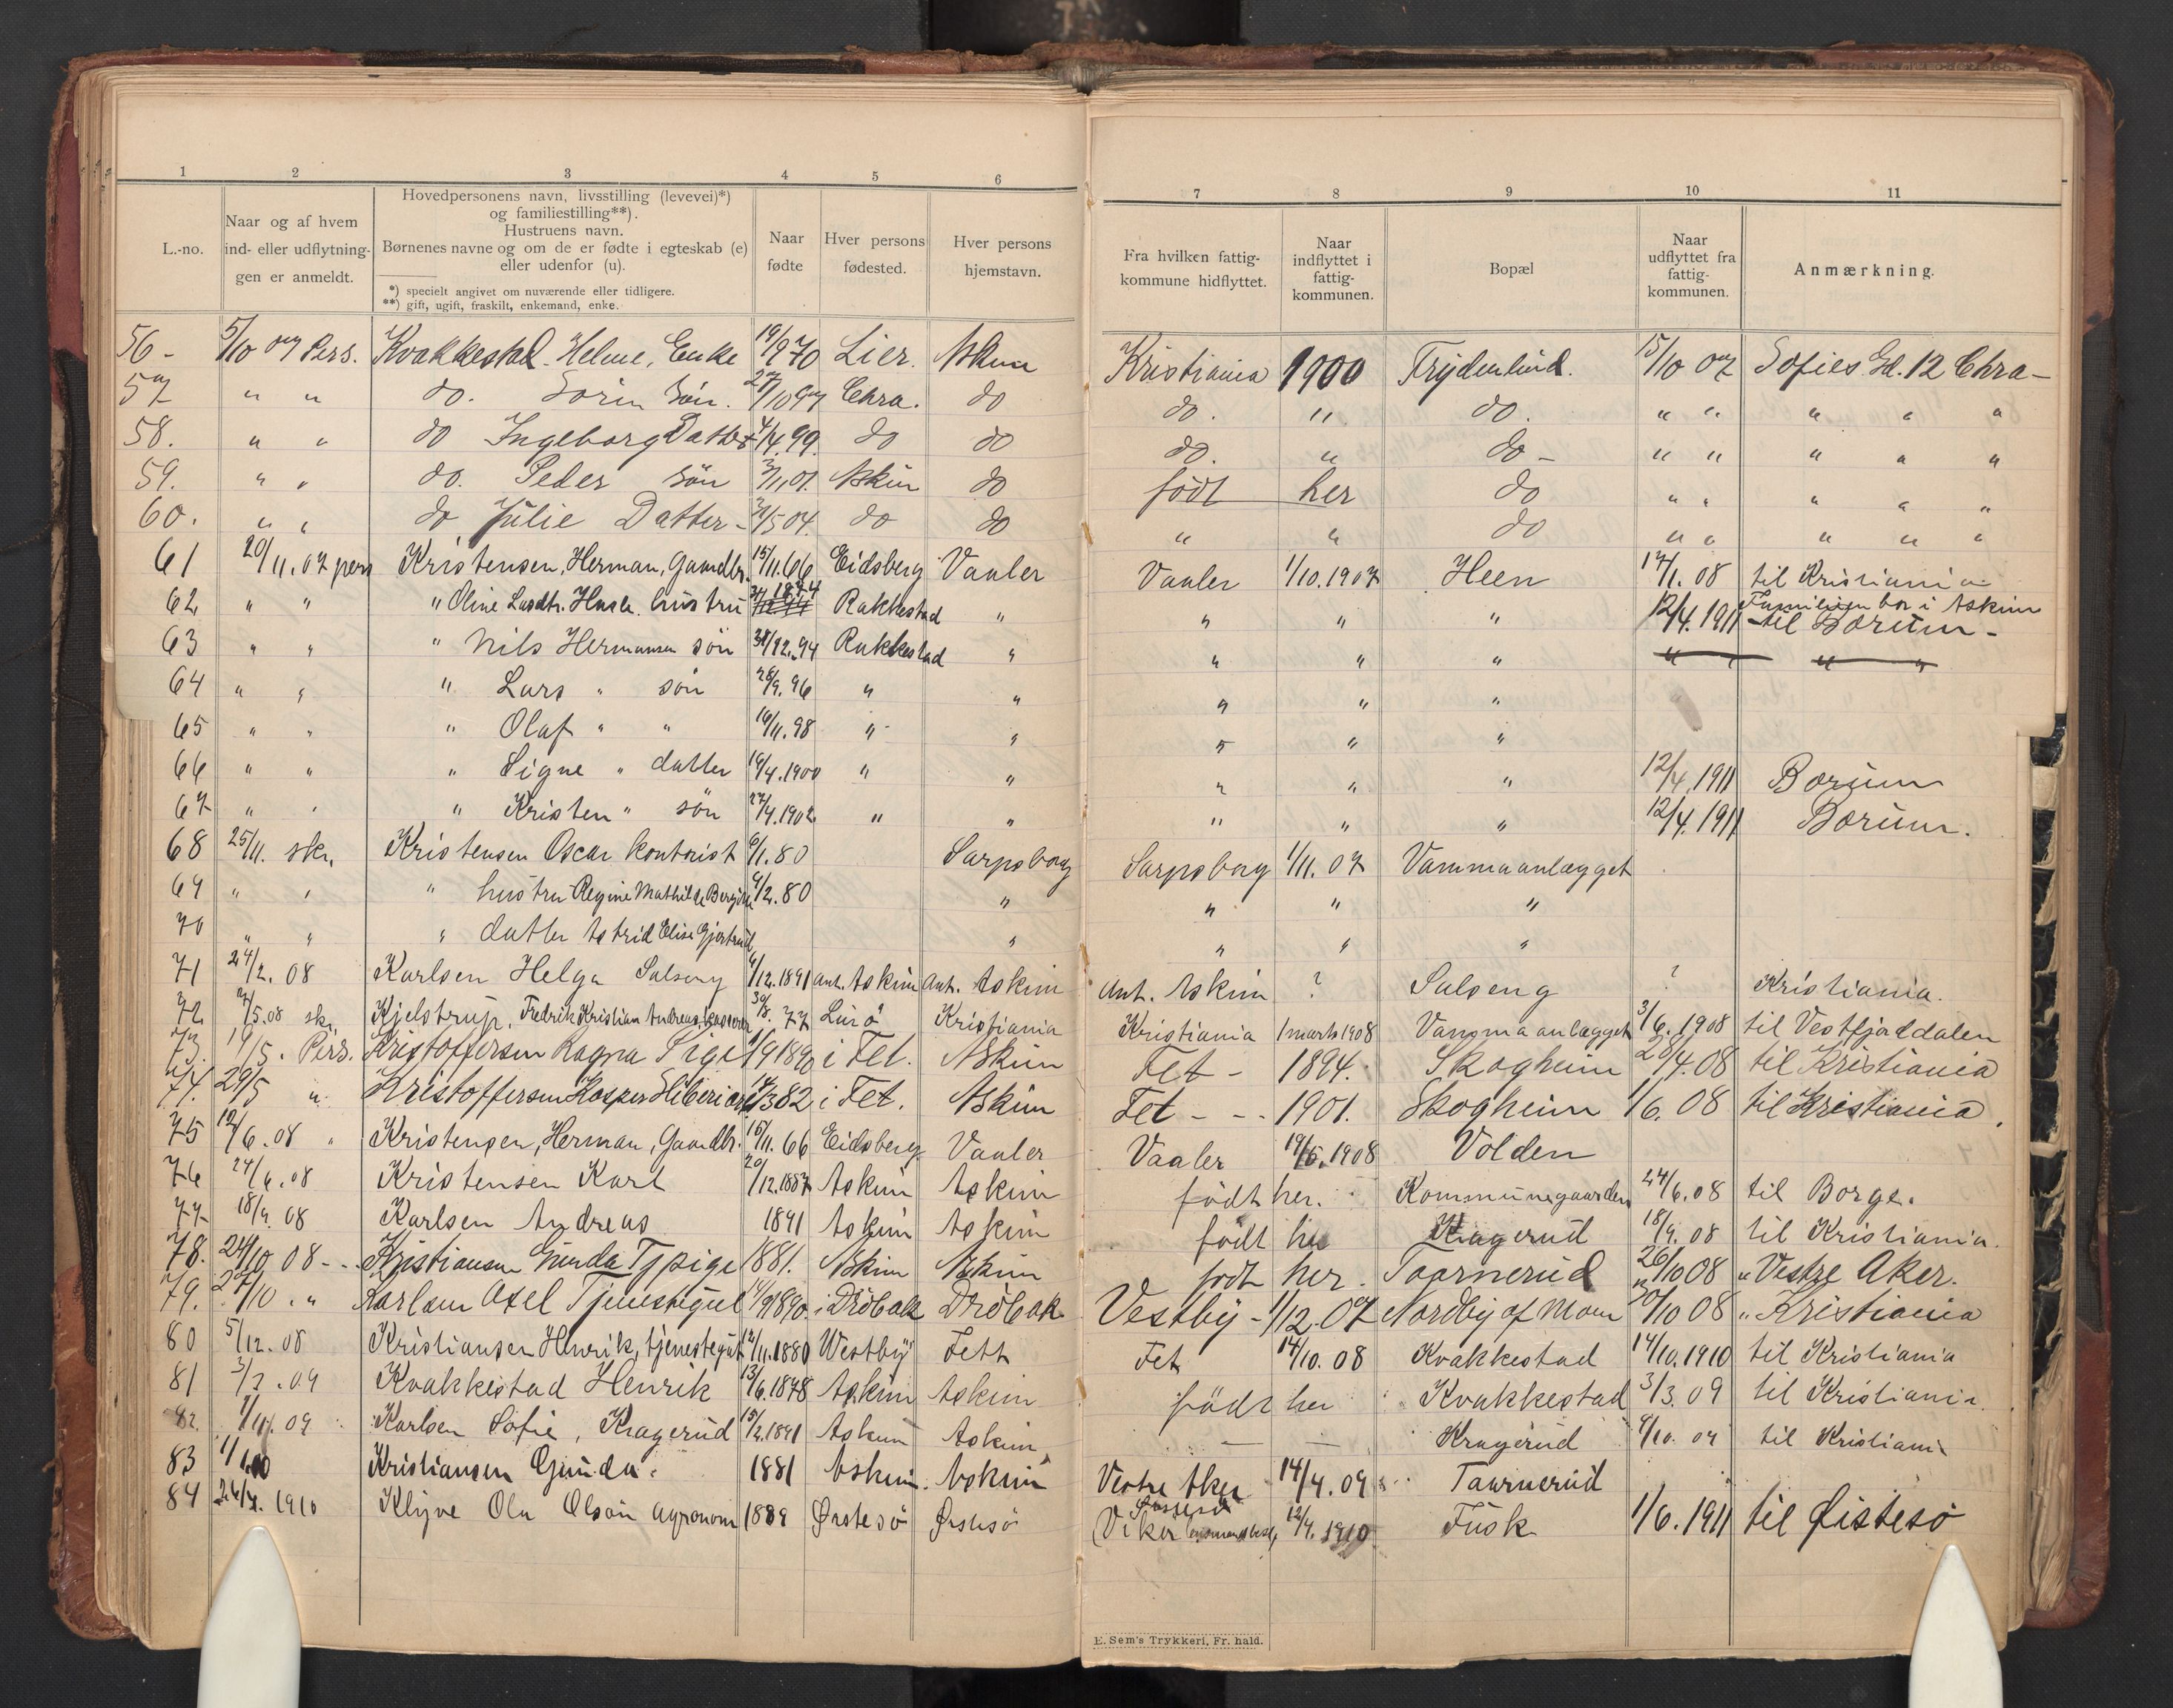 1 2 3 4 5 6 7 8 9 10 11
L.-no.
Naar og af hvem
ind- eller udflytning-
gen er anmeldt.
Hovedpersonens navn, livsstilling (levevei)*)
og familiestilling**).
Hustruens navn.
Børnenes navne og om de er fødte i egteskab (e)
eller udenfor (u).
*) specielt angivet om nuværende eller tidligere.
**) gift, ugift, fraskilt, enkemand, enke.
Naar
fødte
Hver persons
fødested.
Hver persons
hjemstavn.
Fra hvilken fattig-
kommune hidflyttet.
Naar
indflyttet i
fattig-
kommunen.
Bopæl
Naar
udflyttet fra
fattig-
kommunen.
Anmærkning.
56 - 5/10 07 Pers. Kvakkestad Helene, Enke 19/9 70 Lier. Askim Kristiania 1900 Frydenlund. 15/10 07 Sofies Gd. 12 Chra -
57 " " do. Sörin Sön. 27/10 97 Chra. do do. " do. " " " " "
58. " " do Ingeborg Datter 7/4.99. do do do. " do - " " " " "
59. " " do. Peder Sön 3/1.01. Askim do födt her do " " " " "
60. " " do Julie Datter - 2/5 04. do do " " do " " " " "
61 20/11.07 pers Kristensen, Herman, Gaardbr. 15/11.66 Eidsberg Vaaler Vaaler 1/10.1907 Heen 17/1.08 til Kristiania
Familien bor i Askim
62 " " " Oline Larsdtr. hustru 1874 Rakkestad " " " " 12/4.1911 til Bærum -
63 " " " Nils Hermansen sön 31/12.94 Rakkestad " " " " " " "
64 " " " Lars " sön 28/9.96 " " " " "
65 " " " Olaf " " 16/11.98 " " " " "
66 " " " Signe " datter 19/4.1900 " " " " " 12/4.1911 Bærum
67 " " " Kristen " sön 27/4.1902 " " " " " 12/4.1911 Bærum.
68 25/11. skr. Kristensen Oscar Kontorist 6/1.80 Sarpsborg Sarpsborg 1/11.07 Vammaanlægget
69 " " " hustru Regine Mathilde 4/2.80 " " " "
70 " " " datter Astrid Elise Gjertrud " " " "
71 24/2.08 Karlsen Helga Salseng 4/12.1891 ant. Askim ant. Askim ant. Askim ? Salseng ? Kristiania.
72 7/5.08 skr. Kjelstrup, Fredrik Kristian Andreas, kasserer 30/8.77 Lurö Kristiania Kristiania 1 marts 1908 Vammaanlægget 3/6.1908 til Vestfjorddalen
73. 19/5. Pers. Kristoffersen Ragna Pige 1/9 1890 i Fet. Askim Fet - 1894. Skogheim 20/4.08 til Kristiania
74. 29/5 " Kristoffersen Kasper 14/3 82 i Fet. Askim Fet - - 1901. Skogheim 1/6.08 til Kristiania.
75 12/6.08 " Kristensen, Herman, Gaardbr. 15/11.66 Eidsberg Vaaler Vaaler 14/5.1908 Volden
76 24/6.08 Kristensen Karl 20/12.1887 Askim Askim födt her. Kommunegaarden 24/6.08 til Borge.
77 18/9.08 Karlsen Andreas 1891 Askim Askim födt her Kragerud 18/9.08 til Kristiania.
78. 24/10 08 - Kristiansen Gunda Tj pige 1881. Askim Askim födt her. Taarnerud 26/10 08 " Vestre Aker.
79. 27/10 . " Karlsen Axel Tjenestegut 14/9 1890. i Dröbak Dröbak Vestby - 1/12.07 Nordby af Mom 30/10 08 " Kristiania
80 5/12.08 Kristiansen Henrik, tjenestegut 12/11.1880 Westby Fett Fet 14/10.08 Kvakkestad 14/10.1910 til Kristiania
81 3/3.09 Kvakkestad Henrik 13/6.1878 Askim Askim födt her Kvakkestad 3/3.09 til Kristiania.
82. 1/11.09 Karlsen Sofie, Kragerud 15/2.1891 Askim Askim — — Kragerud 9/10.09 til Kristiania
83 1/1.10 Kristiansen Gunda. 1881 Askim. Askim Vestre Aker 14/4.09 Taarnerud
84 26/4.1910 Klyve Ola Olson agronom 1889 Østesö Østesö Viker 12/4.1910 Fusk 1/6.1911 til Øistesö
E. Sem's Trykkeri, Fr. hald.